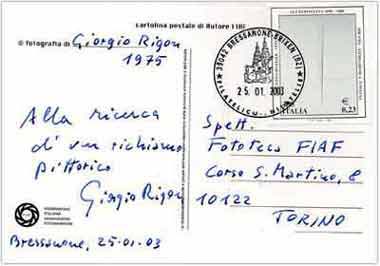 cartolina postale di Autore FIAF
© fotografia di Giorgio Rigon
1975
Alla ricerca
di un richiamo
pittorico
Giorgio Rigon
Bressanone, 25-01-03
39042 BRESSANONE-BRIXEN (BZ)
25.01.2003
FILATELICO
ITALIA
€ 0,23
Spett.
Fototeca FIAF
Corso S. Martino, 8
10122
TORINO